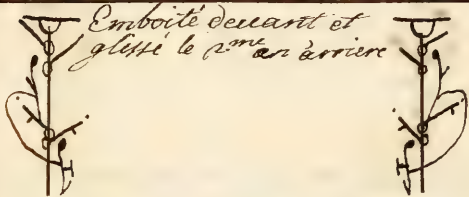 Emboité deuant et
glissé le 2me en àrriere